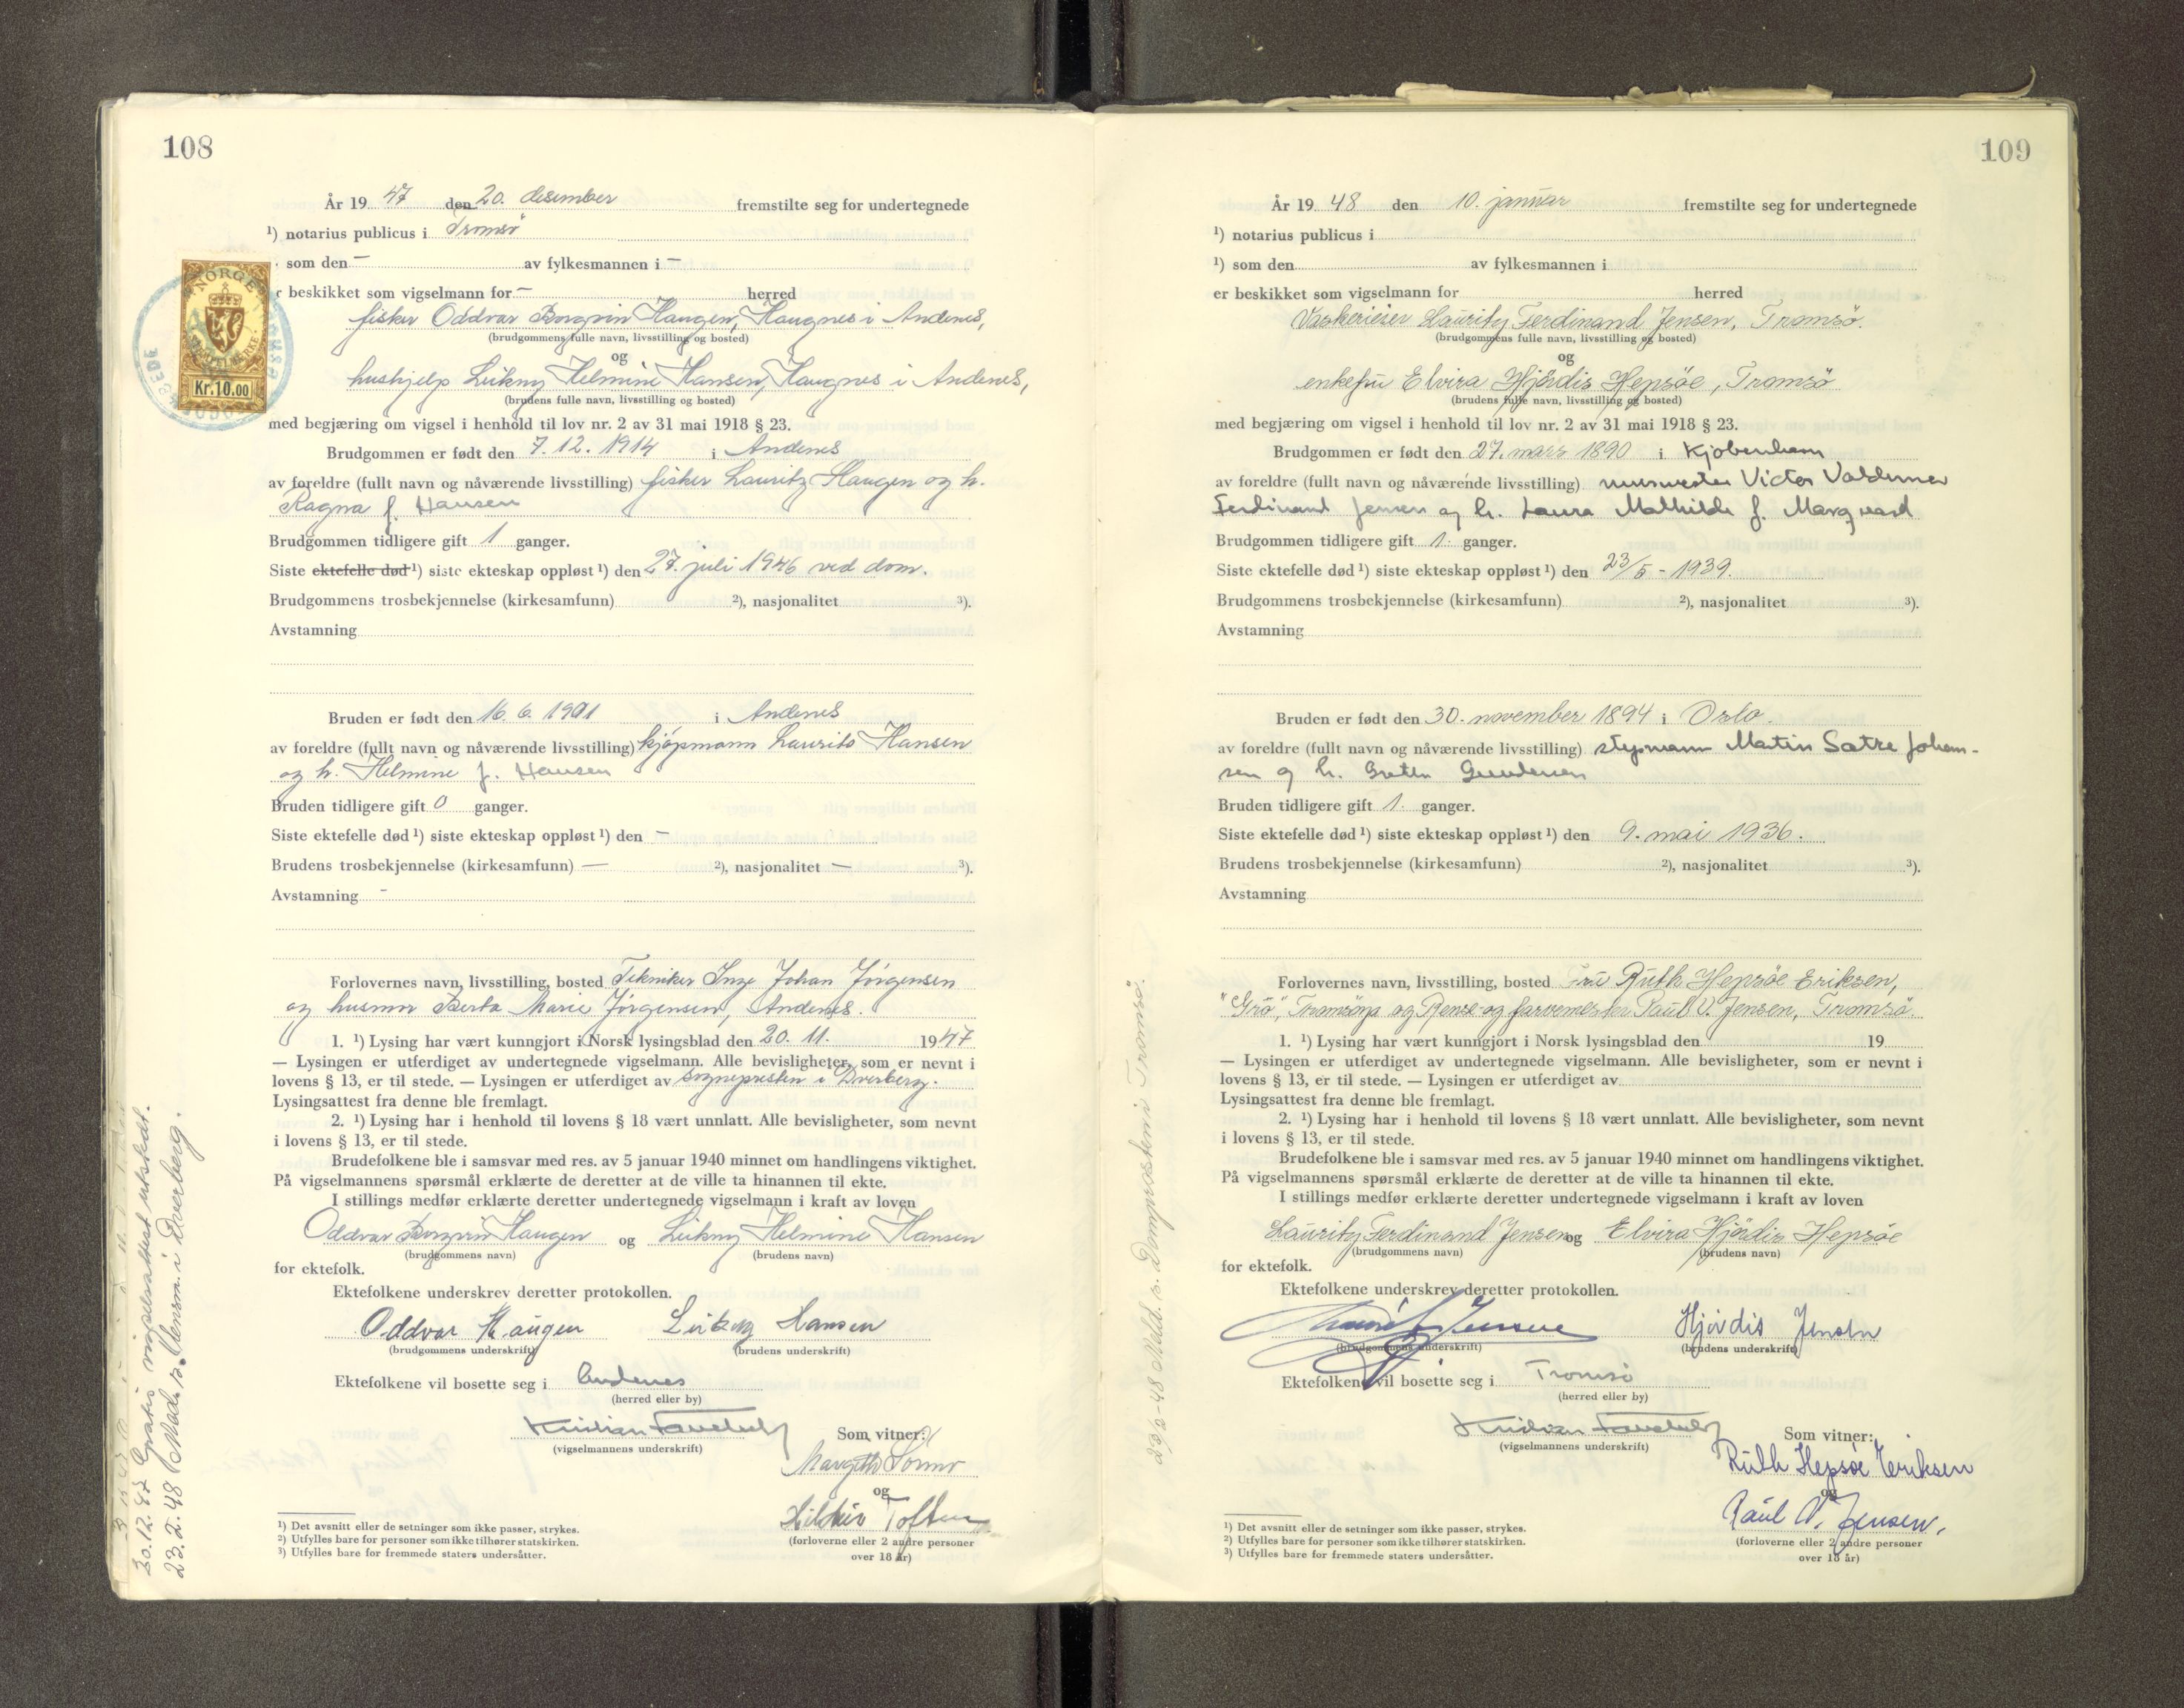 108
År 19 47 den 20. desember fremstilte seg for undertegnede
¹) notarius publicus i Tromsø
som den — av fylkesmannen i —
er beskikket som vigselmann for — herred
fisker Oddvar Borgvin Haugen, Haugnes i Andenes,
(brudgommens fulle navn, livsstilling og bosted)
og
hushjelp Leikny Helmine Hansen, Haugnes i Andenes,
(brudens fulle navn, livsstilling og bosted)
NORGE
STEMPELMERKE
Kr.10.00
med begjæring om vigsel i henhold til lov nr. 2 av 31 mai 1918 § 23.
Brudgommen er født den 7. 12. 1914 i Andenes
av foreldre (fullt navn og nåværende livsstilling) fisker Lauritz Haugen og h.
Ragna f. Hansen
Brudgommen tidligere gift 1 ganger.
Siste ektefelle død ¹) siste ekteskap oppløst ¹) den 27. juli 1946 ved dom.
Brudgommens trosbekjennelse (kirkesamfunn) ²), nasjonalitet ³).
Avstamning
Bruden er født den 16. 6. 1921 i Andenes
av foreldre (fullt navn og nåværende livsstilling) kjøpmann Laurits Hansen
og h. Helmine f. Hansen
Bruden tidligere gift 0 ganger.
Siste ektefelle død ¹) siste ekteskap oppløst ¹) den —
Brudens trosbekjennelse (kirkesamfunn) — ²), nasjonalitet — ³).
Avstamning -
Forlovernes navn, livsstilling, bosted Tekniker Inge Johan Jörgensen
og husmor Berta Marie Jörgensen, Andenes.
1. ¹) Lysing har vært kunngjort i Norsk lysingsblad den 20. 11. 1947
— Lysingen er utferdiget av undertegnede vigselmann. Alle bevisligheter, som er nevnt i
lovens § 13, er til stede. — Lysingen er utferdiget av sognepresten i Dverberg.
Lysingsattest fra denne ble fremlagt.
2. ¹) Lysing har i henhold til lovens § 18 vært unnlatt. Alle bevisligheter, som nevnt
i lovens § 13, er til stede.
Brudefolkene ble i samsvar med res. av 5 januar 1940 minnet om handlingens viktighet.
På vigselmannens spørsmål erklærte de deretter at de ville ta hinannen til ekte.
I stillings medfør erklærte deretter undertegnede vigselmann i kraft av loven
Oddvar Borgvin Haugen og Leikny Helmine Hansen
(brudgommens navn) (brudens navn)
for ektefolk.
Ektefolkene underskrev deretter protokollen.
Oddvar Haugen Leikny Hansen
(brudgommens underskrift) (brudens underskrift)
Ektefolkene vil bosette seg i Andenes
(herred eller by)
(vigselmannens underskrift)
Som vitner:
og
Toften
(forloverne eller 2 andre personer
over 18 år)
¹) Det avsnitt eller de setninger som ikke passer, strykes.
²) Utfylles bare for personer som ikke tilhører statskirken.
³) Utfylles bare for fremmede staters undersåtter.
30.12.47 Gratis vigselsattest utstedt.
23.2.48 Medd. s. lensm. i Dverberg.
109
År 19 48 den 10. januar fremstilte seg for undertegnede
¹) notarius publicus i
¹) som den av fylkesmannen i
er beskikket som vigselmann for herred
Vaskerieier Lauritz Ferdinand Jensen, Tromsö.
(brudgommens fulle navn, livsstilling og bosted)
og
enkefru Elvira Hjördis Hepsöe, Tromsö
(brudens fulle navn, livsstilling og bosted)
med begjæring om vigsel i henhold til lov nr. 2 av 31 mai 1918 § 23.
Brudgommen er født den 27. mars 1890 i Kjøbenhavn
av foreldre (fullt navn og nåværende livsstilling) murmester Victor Valdemar
Ferdinand Jensen og h. Laura Mathilde f. Marqvard
Brudgommen tidligere gift 1. ganger.
Siste ektefelle død ¹) siste ekteskap oppløst ¹) den 23/5 - 1939.
Brudgommens trosbekjennelse (kirkesamfunn) ²), nasjonalitet ³).
Avstamning
Bruden er født den 30. november 1894 i Oslo.
av foreldre (fullt navn og nåværende livsstilling) styrmann Martin Sætre Johan-
sen og h. Grethe Gundersen
Bruden tidligere gift 1. ganger.
Siste ektefelle død ¹) siste ekteskap oppløst ¹) den 9. mai 1936.
Brudens trosbekjennelse (kirkesamfunn) ²), nasjonalitet ³).
Avstamning
Forlovernes navn, livsstilling, bosted Fru Ruth Hepsöe Eriksen,
"Grö", Tromsöya og Rense- og farvemester Paul V. Jensen, Tromsö.
1. ¹) Lysing har vært kunngjort i Norsk lysingsblad den 19
— Lysingen er utferdiget av undertegnede vigselmann. Alle bevisligheter, som er nevnt i
lovens § 13, er til stede. — Lysingen er utferdiget av
Lysingsattest fra denne ble fremlagt.
2. ¹) Lysing har i henhold til lovens § 18 vært unnlatt. Alle bevisligheter, som nevnt
i lovens § 13, er til stede.
Brudefolkene ble i samsvar med res. av 5 januar 1940 minnet om handlingens viktighet.
På vigselmannens spørsmål erklærte de deretter at de ville ta hinannen til ekte.
I stillings medfør erklærte deretter undertegnede vigselmann i kraft av loven
Lauritz Ferdinand Jensen og Elvira Hjördis Hepsöe
(brudgommens navn) (brudens navn)
for ektefolk.
Ektefolkene underskrev deretter protokollen.
Jensen Hjördis Jensen
(brudgommens underskrift) (brudens underskrift)
Ektefolkene vil bosette seg i Tromsö
(herred eller by)
(vigselmannens underskrift)
Som vitner:
Ruth Hepsöe Eriksen
og
Paul V. Jensen.
(forloverne eller 2 andre personer
over 18 år)
¹) Det avsnitt eller de setninger som ikke passer, strykes.
²) Utfylles bare for personer som ikke tilhører statskirken.
³) Utfylles bare for fremmede staters undersåtter.
23/2-48 Meld. s. Domprosten i Tromsö.